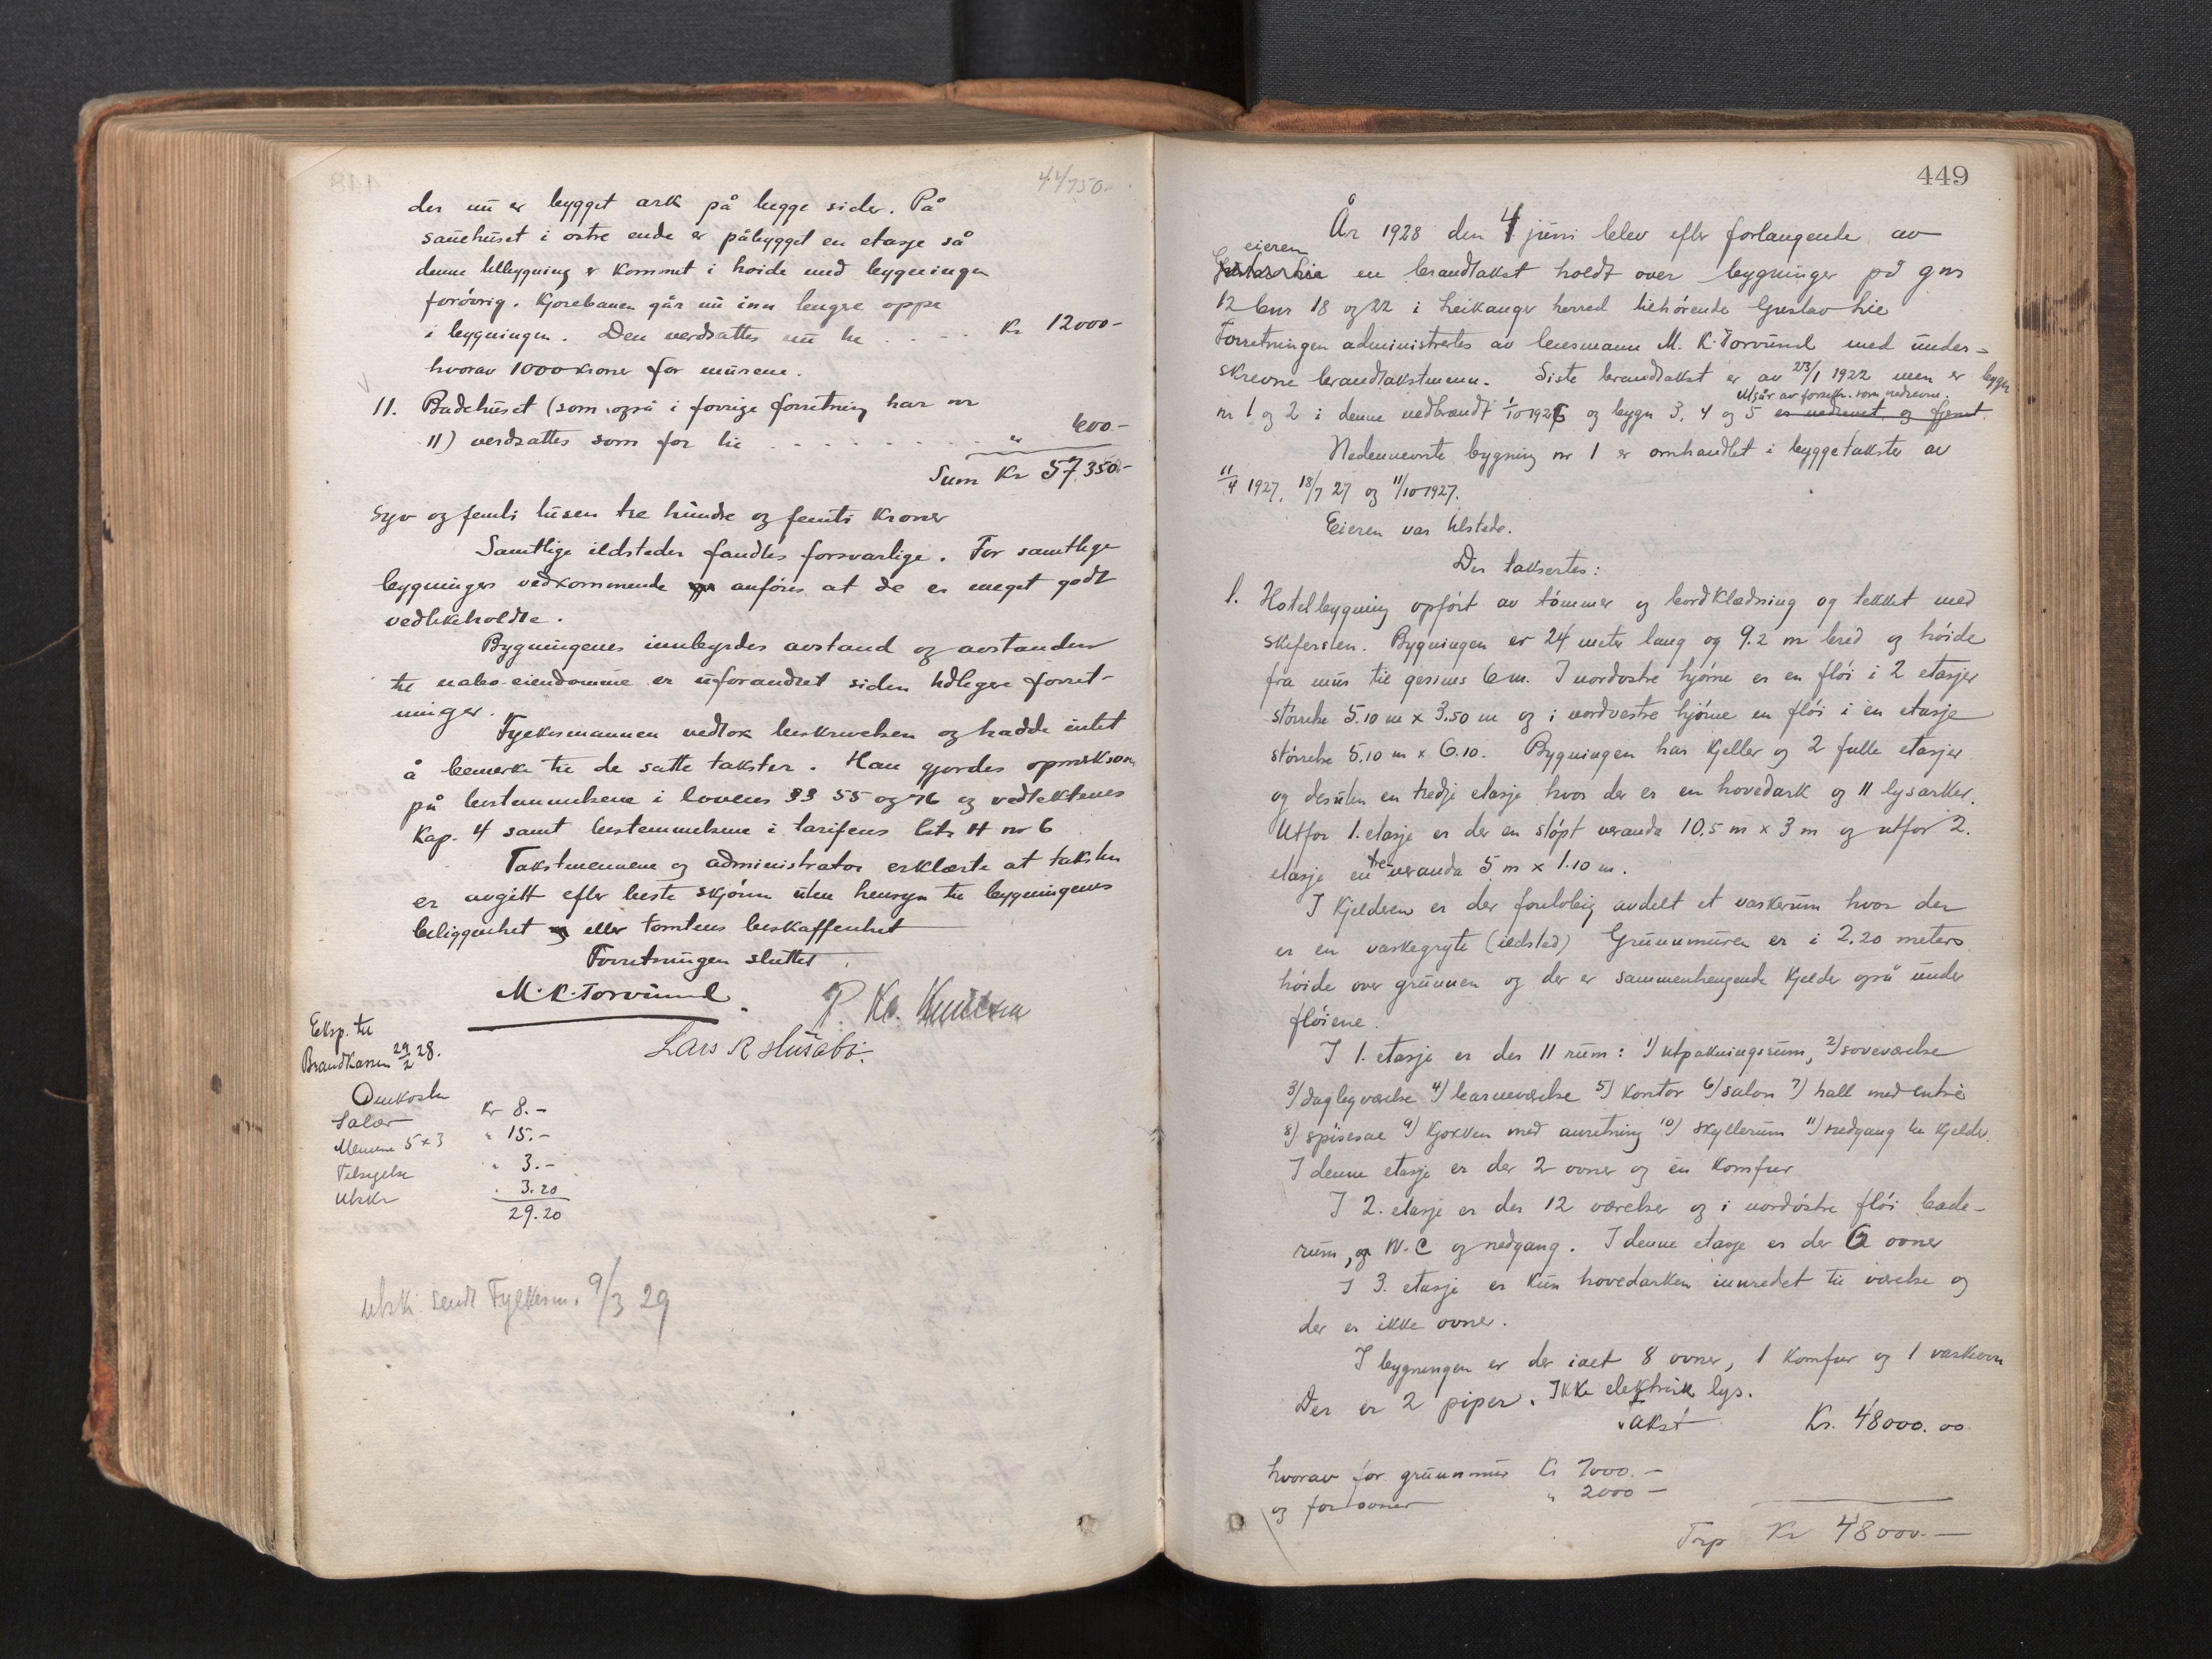 44/750.
der nu er bygget ark på begge sider. På
sauehuset i østre ende er påbygget en etasje så
denne tilbygning er kommet i høide med bygningen
forøvrig. Kjørebanen går nu inn lengre oppe
i bygningen. Den verdsattes nu til . . . . Kr 12000-
hvorav 1000 kroner for murene.
11. Badehuset (som også i forrige forretning har nr
11) verdsattes som før til . . . . . . . . . . " 600.-
Sum Kr 57.350.-
Syv og femti tusen tre hundre og femti kroner
Samtlige ildsteder fandtes forsvarlige. For samtlige
bygninger vedkommende anføres at de er meget godt
vedlikeholdte.
Bygningenes innbyrdes avstand og avstanden
til nabo-eiendomme er uforandret siden tidligere forret-
ninger.
Fylkesmannen vedtok beskrivelsen og hadde intet
å bemerke til de satte takster. Han gjordes opmerksom
på bestemmelsene i lovens §§ 55 og 76 og vedtektenes
Kap. 4 samt bestemmelsene i tarifens litr H nr 6
Takstmennene og administrator erklærte at taksten
er avgitt efter beste skjønn uten hensyn til bygningenes
beliggenhet eller tomtens beskaffenhet
Forretningen sluttet.
M. K. Torvund
Lars R Husabø.
Eksp. til
Brandkassen 29/2 28.
Omkostn
Salær Kr 8.-
Mennene 5x3 " 15.-
Tilsigelse " 3.-
Utskr " 3.20
29.20
Utskr. sendt Fylkesm. 9/3 29
449
År 1928 den 4 juni blev efter forlangende av
eieren
Gustav Lie en brandtakst holdt over bygninger på gnr
12 bnr 18 og 22 i Leikanger herred tilhørende Gustav Lie
Forretningen administrertes av lensmann M. K. Torvund med under-
skrevne brandtakstmenn. Siste brandtakst er av 23/1 1922 men er bygn
Utgår av forsikr. som nedrevne.
nr 1 og 2 i denne nedbrændt 1/10 1926 og bygn 3, 4 og 5 er nedrevet og fjernet.
Nedennevnte bygning nr 1 er omhandlet i byggetakster av
11/4 1927, 18/7 27 og 11/10 1927.
Eieren var tilstede.
Der taksertes:
1. Hotelbygning opført av tømmer og bordklædning og tekket med
skifersten. Bygningen er 24 meter lang og 9.2 m bred og høide
fra mur til gesims 6 m. I nordøstre hjørne er en fløi i 2 etasjer
størrelse 5.10 m x 3.50 m og i nordvestre hjørne en fløi i en etasje
størrelse 5.10 m x 6.10. Bygningen har kjeller og 2 fulle etasjer
og desuten en tredje etasje hvor der er en hovedark og 11 lysarker.
Utfor 1. etasje er der en støpt veranda 10.5 m x 3 m og utfor 2.
etasje en treveranda 5 m x 1.10 m.
I kjelderen er der foreløbig avdelt et vaskerum hvor der
er en vaskegryte (ildsted) Grunnmuren er i 2.20 meters
høide over grunnen og der er sammenhengende kjelder også under
fløiene.
I 1. etasje er der 11 rum: 1) utpakningsrum, 2) soveværelse
3) dagligværelse 4) barneværelse 5) kontor 6) salon 7) hall med entré
8) spisesal 9) kjøkken med anretning 10) skyllerum 11) nedgang til kjelder.
I denne etasje er der 2 ovner og en komfur
I 2. etasje er der 12 værelser og i nordøstre fløi bade-
rum, og W.C og nedgang. I denne etasje er der 6 ovner
I 3. etasje er kun hovedarken innredet til værelse og
der er ikke ovner.
I bygningen er der ialt 8 ovner, 1 komfur og 1 vaskeovn
Der er 2 piper. Ikke elektrisk lys.
Takst Kr. 48000.00
hvorav for grunnmur Kr 7000.-
og for ovner " 2000-
Trsp Kr 48000.-